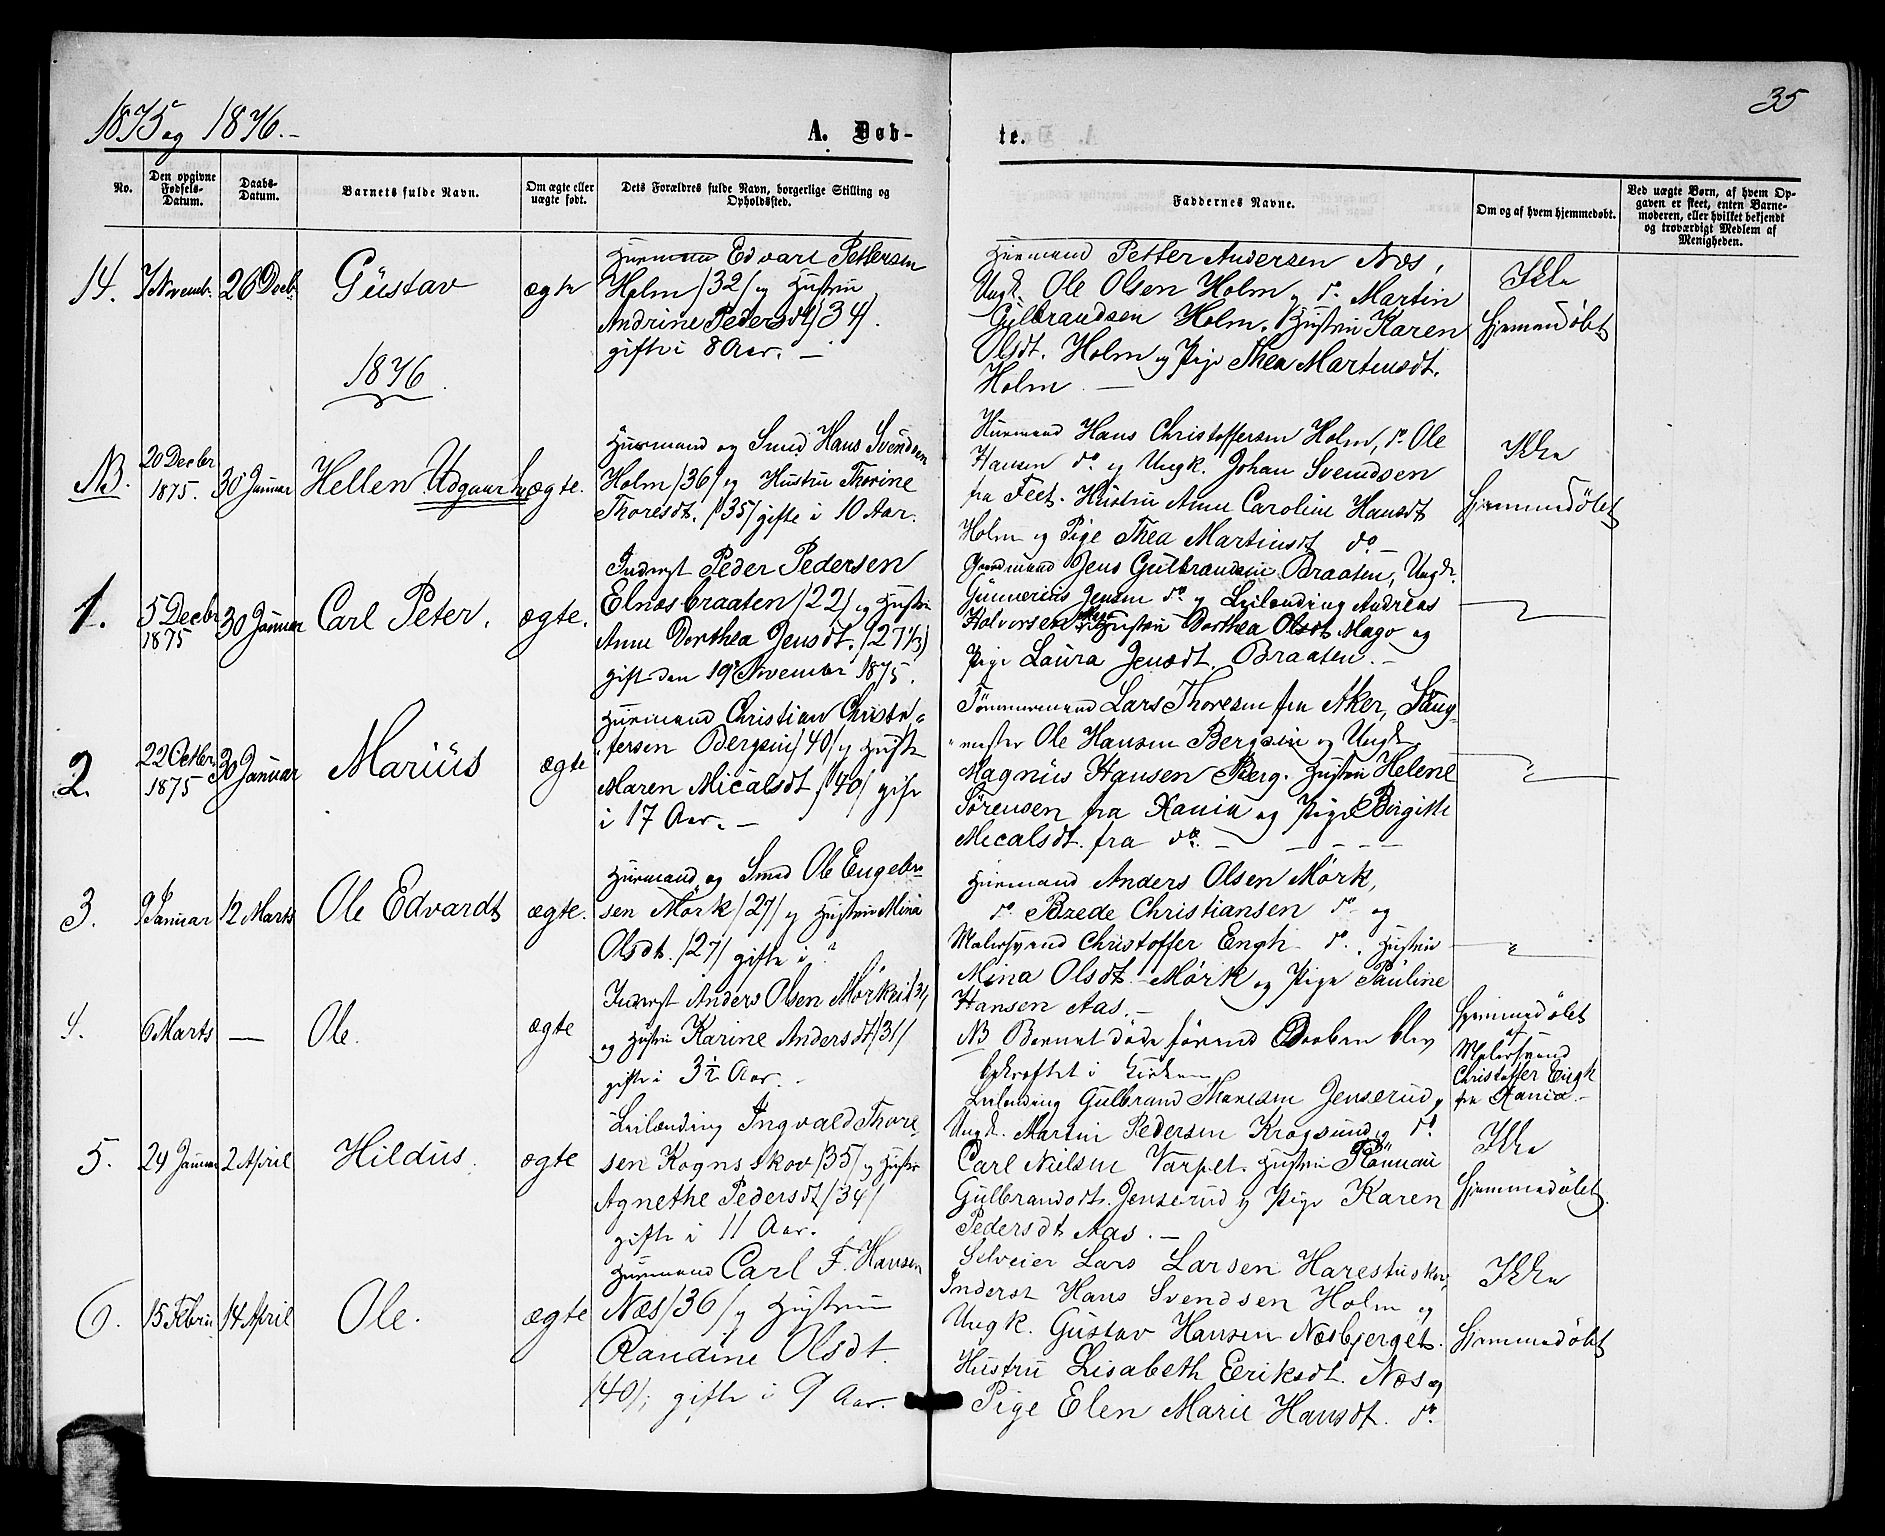 1875 og 1876.-
35
A. Døb-
te.
No.
Den opgivne Fødsels-Datum.
Daabs-Datum.
Barnets fulde Navn.
Om ægte eller uægte født.
Dets Forældres fulde Navn, borgerlige Stilling og Opholdssted.
Faddernes Navne.
Om og af hvem hjemmedøbt.
Ved uægte Børn, af hvem Opgaven er skeet, enten Barnemoderen, eller hvilket bekjendt og troværdigt Medlem af Menigheden.
14.
7 Novemb.
26 Decb.
Gustav
ægte
Husmand Edvart Pettersen
Holm /32/ og Hustru
Andrine Pedersdt /34/.
gifte i 8 Aar. —
Husmand Petter Andersen Næs,
Ungk. Ole Olsen Holm og do. Martin
Gulbrandsen Holm. Hustru Karen
Olsdt. Holm og Pige Thea Martinsdt.
Holm. —
Ikke
hjemmedøbt
1876.
NB.
20 Decbr
1875.
30 Januar
Hellen Udgaar
ægte.
Husmand og Smed Hans Svendsen
Holm /36/ og Hustru Thorine
Thoresdt. /35/ gifte i 10 Aar.
Husmand Hans Christoffersen Holm, do. Ole
Hansen do. og Ungk. Johan Svendsen
fra Feet. Hustru Anne Caroline Hansdt
Holm og Pige Thea Martinsdt do. —
Ikke
hjemmedøbt
1.
5 Decbr
1875
30 Januar
Carl Peter.
ægte.
Inderst Peder Pedersen
Elnæsbraaten /22/ og Hustru
Anne Dorthea Jensdt. /27½/
gift den 19de November 1875.
Gaardmand Jens Gulbrandsen Braaten, Ungk.
Gunnerius Jensen do. og Leilending Andreas
Holversen Hustru Dorthea Olsdt Mago og
Pige Laura Jensdt. Braaten. —
2.
22 Octbr
1875
30 Januar
Marius
ægte
Husmand Christian Christo-
fersen Bergsin /40/ og Hustru
Maren Micalsdt. /40/ gift
i 17 Aar. —
Tømmermand Lars Thoresen fra Aker, Sang-
mester Ole Hansen Bergsin og Ungk.
Magnus Hansen Berg. Hustru Helene
Sørensen fra Xania og Pige Birgitte
Micalsdt. fra do. —
3.
9 Januar
12 Marts
Ole Edvardt
ægte.
Husmand og Smed Ole Engebre-
sen Mörk /27/ og Hustru Mina
Olsdt. /27/ gifte i ?
Husmand Anders Olsen Mörk,
do. Brede Christiansen do. og
Malersvend Christoffer Engh do. Hustru
Mina Olsdt. Mörk og Pige Pauline
Hansen Aas. —
4.
6 Marts
—
Ole.
ægte
Inderst Anders Olsen Mörkeie /31/
og Hustru Karine Andersdt /31/
gifte i 3½ Aar. -
NB Barnet døde førend Daaben blev
bekræftet i Kirken
Hjemmedøbt
af
Malersvend
Christoffer Engh
fra Xania. -
5.
24 Januar
2 April
Hildus.
ægte
Leilænding Ingvald Thore-
sen Kognsskov /35/ og Hustru
Agnethe Pedersdt /34/
gifte i 11 Aar.
Leilending Gulbrand Thoresen Jenserud,
Ungk. Martin Pedersen Krogsund og do.
Carl Nielsen Varpet. Hustru Rönnau
Gulbrandsdt. Jenserud og Pige Karen
Pedersdt Aas. —
Ikke
hjemmedøbt.
6.
15 Febru
14 April
Ole.
ægte
Husmand Carl F. Hansen
Næs /36/ og Hustru
Randine Olsdt.
/40/; gifte i 9 Aar. —
Selveier Lars Larsen Harestuskov,
Inderst Hans Svendsen Holm og
Ungk. Gustav Hansen Næsbjerget.
Hustru Lisabeth Eriksdt. Næs og
Pige Elen Marie Hansdt. do.
Ikke
hjemmedøbt